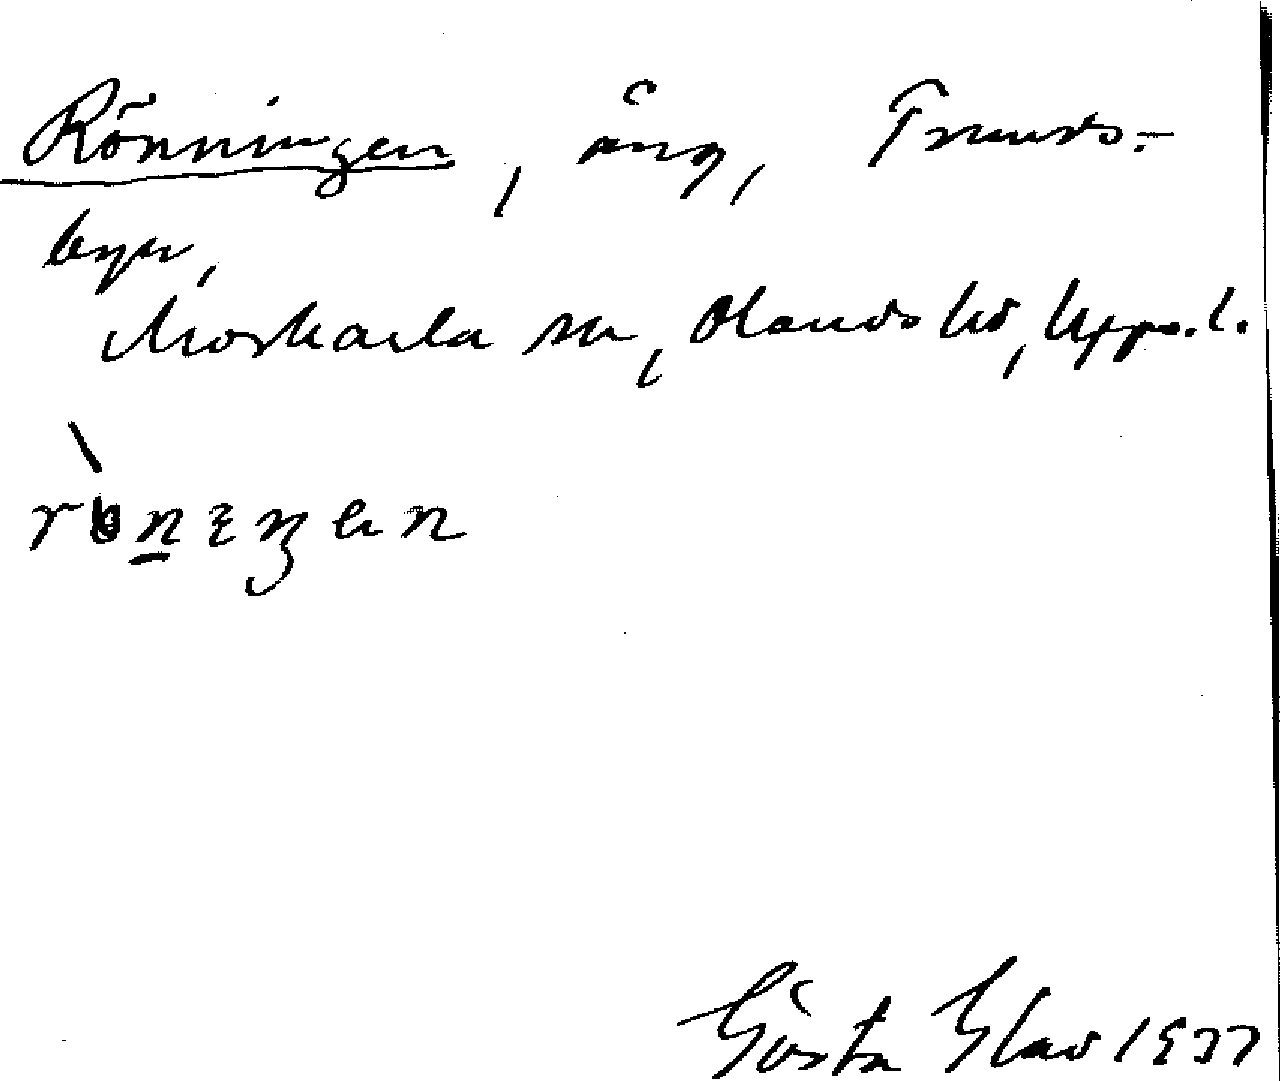 Rönningen, äng, Truuds-
byn,
Morkarla sn, Olands hd, Upps. l.
rönıŋen
Gösta Glad 1937